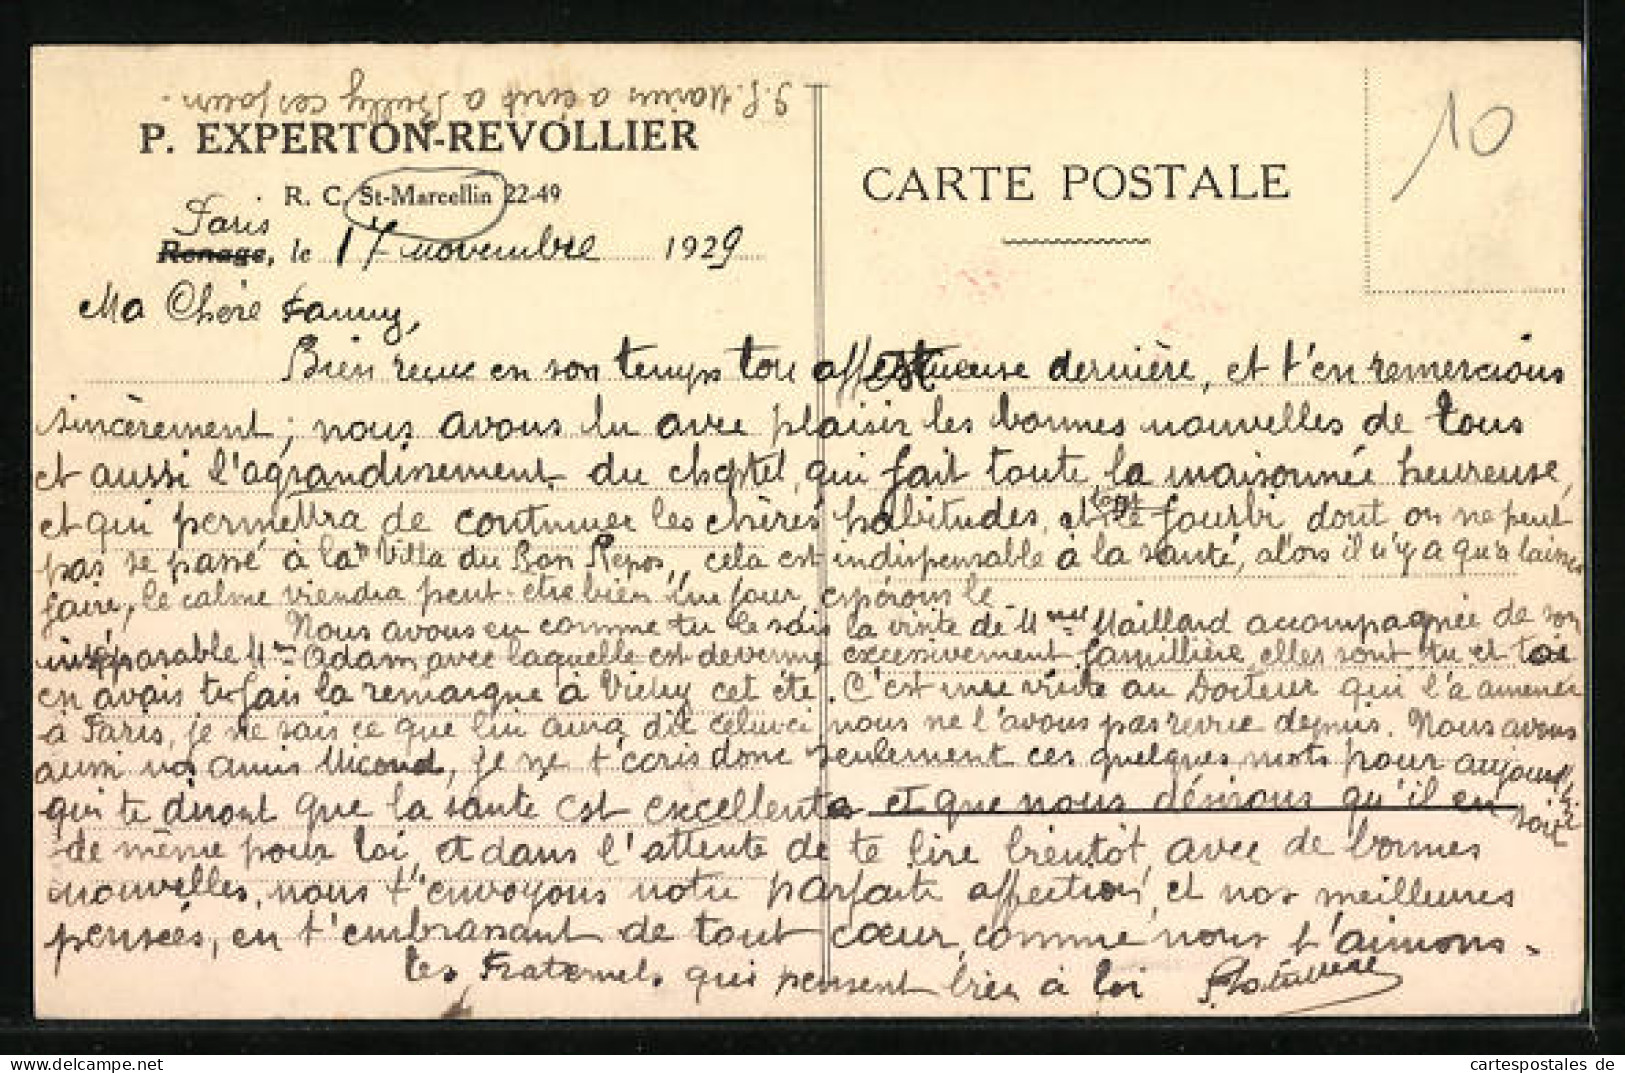 P.S. Marius a écrit à Bully ces jours.
P. EXPERTON-REVOLLIER
R. C. St-Marcellin 22-49
Paris
Renage, le 17 novembre 1929
CARTE POSTALE
10
Ma Chère Fanny,
Bien reçue en son temps ton affectueuse dernière, et t'en remercions
sincèrement; nous avons lu avec plaisir les bonnes nouvelles de tous
et aussi l'agrandissement du cheptel, qui fait toute la maisonnée heureuse,
et qui permettra de continuer les chères habitudes, et tout le fourbi dont on ne peut
pas se passé à la "Villa du Bon Repos", cela est indispensable à la santé, alors il n'y a qu'a laisser
faire, le calme viendra peut-être bien un jour, espérons le
Nous avons eu comme tu le sais la visite de Mme Maillard accompagnée de son
inséparable Mme Adam, avec laquelle est devenue excessivement famillière, elles sont tu et toi
en avais tu fais la remarque à Vichy cet été. C'est une visite au Docteur qui l'a amener
à Paris, je ne sais ce que lui aura dit celui ci nous ne l'avons pas revue depuis. Nous avons
aussi nos amis Micoud, je ne t'écris donc seulement ces quelques mots pour aujourd'hui
qui te diront que la santé est excellente et que nous désirons qu'il en soit
de même pour toi, et dans l'attente de te lire bientôt, avec de bonnes
nouvelles, nous t'envoyons notre parfaite affection, et nos meilleures
pensées, en t'embrassant de tout cœur, comme nous t'aimons.
tes Fraternels qui pensent bien à toi
cartespostales de